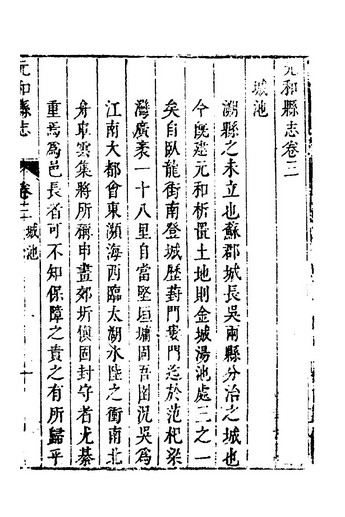 元和縣志卷三
城池
溯縣之未立也蘇郡城長吳兩縣分治之城也
今旣建元和析置土地則金城湯池處三之一
矣自臥龍街南登城歷葑門婁門迄於范杞梁
灣廣袤一十八里自當堅垣墉固吾圉況吳爲
江南大都會東瀕海西臨太湖水陸之衝南北
舟車雲集將所稱申畫郊圻愼固封守者尤綦
重焉爲邑長者可不知保障之責之有所歸乎
元和縣志
卷三
城池
一